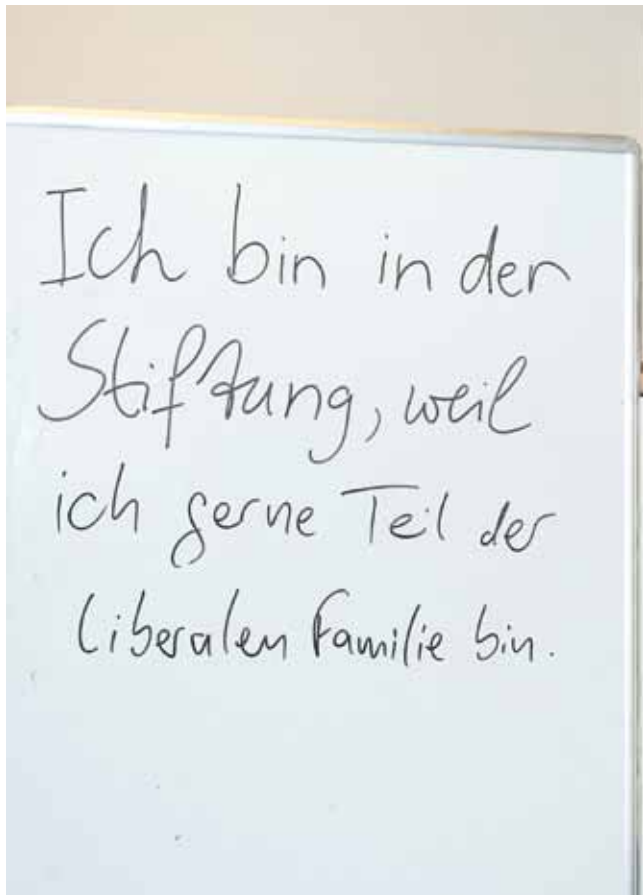 Ich bin in der
Stiftung, weil
ich gerne Teil der
liberalen Familie bin.